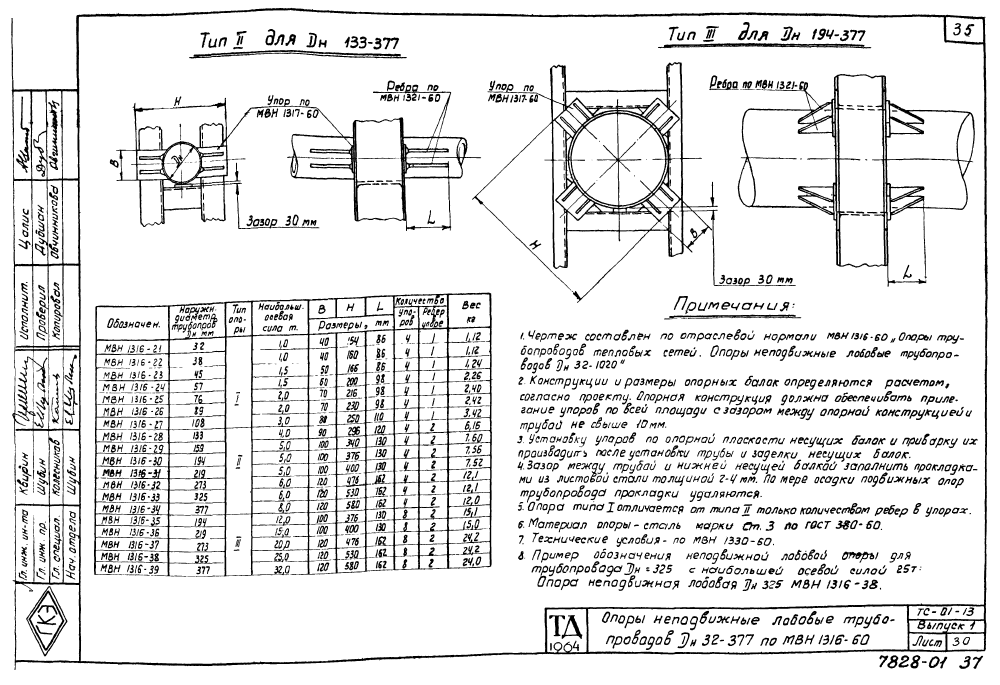 35
Тип II для Dн 133-377
Тип III для Dн 194-377
H
Упор по
МВН 1317-60
Ребра по
МВН 1321-60
B
Dн
Зазор 30 мм
L
Упор по
МВН 1317-60
Ребра по МВН 1321-60
H
B
Зазор 30 мм
L
Обозначен. Наружн. диаметр трубопров Dн мм Тип опоры Наибольш. осевая сила т. B H L Размеры, мм Количество упоров Ребер в упоре Вес кг
МВН 1316-21 32 I 1,0 40 154 86 4 1 1,12
МВН 1316-22 38 1,0 40 160 86 4 1 1,12
МВН 1316-23 45 1,5 50 166 86 4 1 1,24
МВН 1316-24 57 1,5 60 200 98 4 1 2,26
МВН 1316-25 76 2,0 70 216 98 4 1 2,40
МВН 1316-26 89 2,0 70 230 98 4 1 2,42
МВН 1316-27 108 3,0 80 250 110 4 1 3,42
МВН 1316-28 133 II 4,0 90 296 120 4 2 6,16
МВН 1316-29 159 5,0 100 340 130 4 2 7,60
МВН 1316-30 194 5,0 100 376 130 4 2 7,56
МВН 1316-31 219 5,0 100 400 130 4 2 7,52
МВН 1316-32 273 6,0 120 476 162 4 2 12,1
МВН 1316-33 325 6,0 120 530 162 4 2 12,1
МВН 1316-34 377 8,0 120 580 162 4 2 12,0
МВН 1316-35 194 III 12,0 100 376 130 8 2 15,1
МВН 1316-36 219 15,0 100 400 130 8 2 15,0
МВН 1316-37 273 20,0 120 476 162 8 2 24,2
МВН 1316-38 325 25,0 120 530 162 8 2 24,2
МВН 1316-39 377 32,0 120 580 162 8 2 24,0
Примечания:
1. Чертеж составлен по отраслевой нормали МВН 1316-60 „Опоры тру-
бопроводов тепловых сетей. Опоры неподвижные лобовые трубопро-
водов Dн 32-1020"
2. Конструкции и размеры опорных балок определяются расчетом,
согласно проекту. Опорная конструкция должна обеспечивать приле-
гание упоров по всей площади с зазором между опорной конструкцией и
трубой не свыше 10мм.
3. Установку упоров по опорной плоскости несущих балок и приварку их
производить после установки трубы и заделки несущих балок.
4. Зазор между трубой и нижней несущей балкой заполнить прокладка-
ми из листовой стали толщиной 2-4 мм. По мере осадки подвижных опор
трубопровода прокладки удаляются.
5. Опора типа I отличается от типа II только количеством ребер в упорах.
6. Материал опоры - сталь марки Ст. 3 по ГОСТ 380-60.
7. Технические условия - по МВН 1330-60.
8. Пример обозначения неподвижной лобовой опоры для
трубопровода Dн = 325 с наибольшей осевой силой 25т:
Опора неподвижная лобовая Dн 325 МВН 1316-38.
ТД
1964
Опоры неподвижные лобовые трубо-
проводов Dн 32-377 по МВН 1316-60
ТС-01-13
Выпуск 1
Лист 30
7828-01 37
Гл. инж. ин-та Квирин
Гл. инж. пр. Шубин
Гл. специал. Колесников
Нач. отдела Шубин
Исполнит. Цалис
Проверил Дубшан
Копировал Овчинникова
ГКЭ